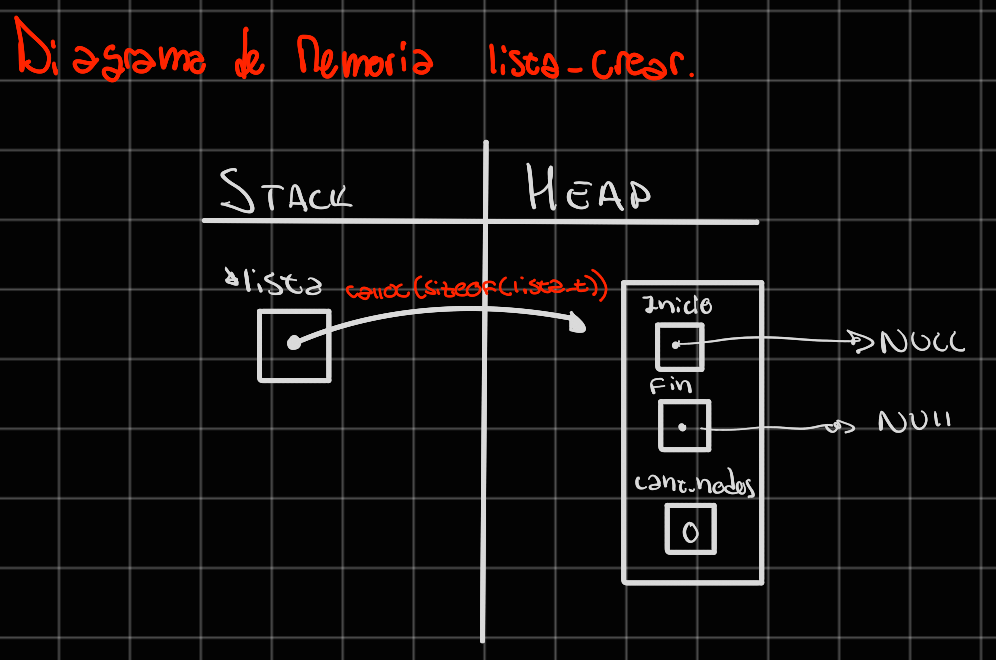 Diagrama de Memoria lista_crear.
STACK HEAP
*lista calloc(sizeof(lista_t))
Inicio
NULL
Fin
NUll
cant_nodos
0